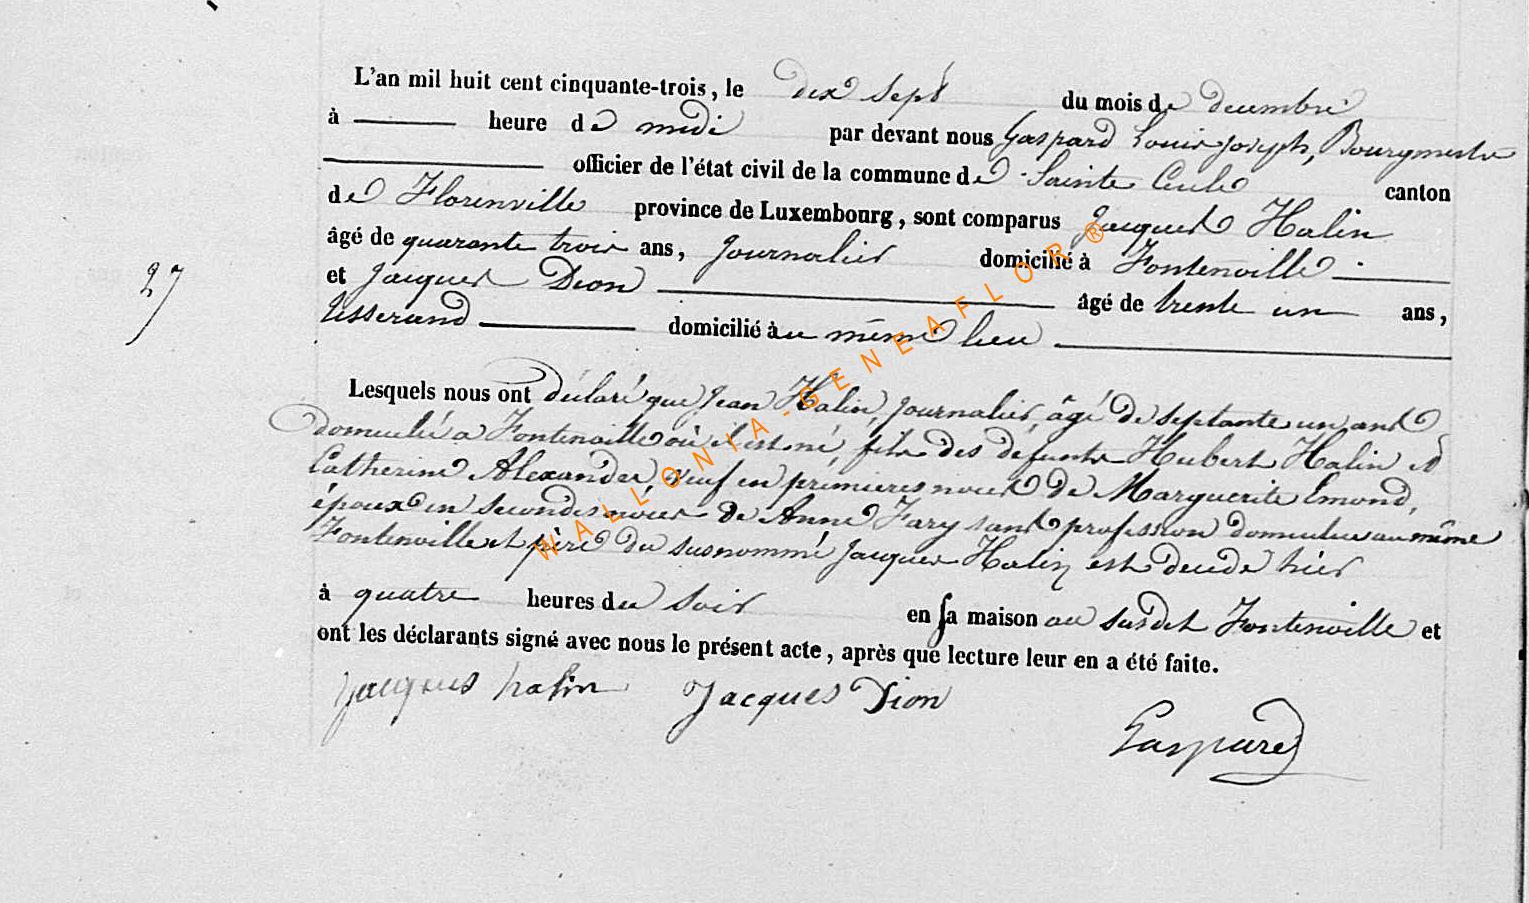 L'an mil huit cent cinquante-trois, le dix sept du mois de decembre
à heure de midi par devant nous Gaspard Louis Joseph, Bourgmestre
officier de l'état civil de la commune de Sainte Cecile canton
de Florenville province de Luxembourg, sont comparus Jacques Halin
âgé de quarante trois ans, journalier domicilié à Fontenoille
et Jacques Dion âgé de trente un ans,
tisserand domicilié au même lieu
27
Lesquels nous ont déclaré que Jean Halin, journalier, âgé de septante un ans
domicilié a Fontenoille où il est né, fils des défunts Hubert Halin et
Catherine Alexandre, veuf en premieres noces de Marguerite Emond,
époux en secondes noces de Anne Fary sans profession domiciliée au même
Fontenoille et père du susnommé Jacques Halin est decedé hier
à quatre heures du soir en sa maison au susdit Fontenoille et
ont les déclarants signé avec nous le présent acte, après que lecture leur en a été faite.
Jacques halin Jacques Dion
Gaspard
WALLONIA-GENEAFLOR®